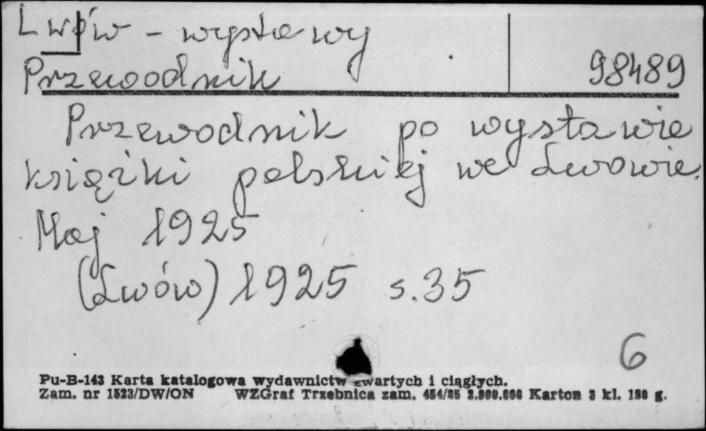 Lwów - wystawy
Przewodnik 98489
Przewodnik po wystawie
książki polskiej we Lwowie.
Maj 1925
(Lwów) 1925 s.35
6
Pu-B-143 Karta katalogowa wydawnictw zwartych i ciągłych.
Zam. nr 1523/DW/ON WZGraf Trzebnica zam. 454/85 2.000.000 Karton 3 kl. 180 g.